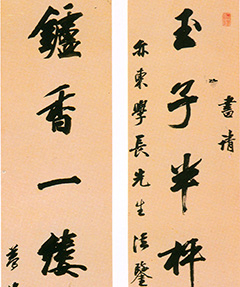 書請
玉子半枰
亦東學長先生法鑒
鑪香一縷